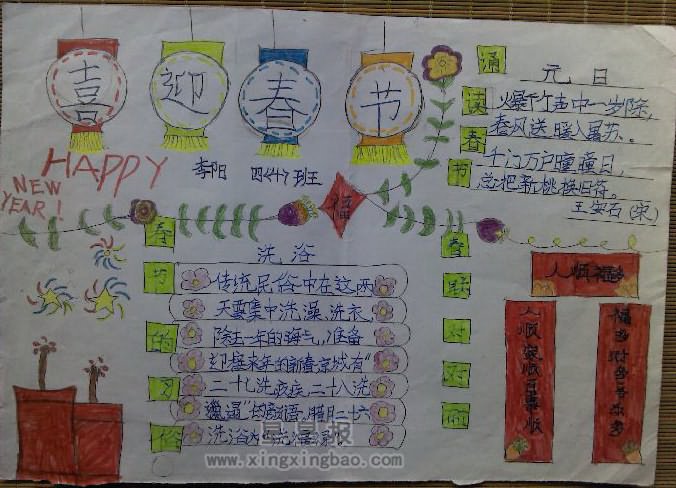 喜迎春节
HAPPY
NEW
YEAR!
李阳 四(十)班
福
诵读春节
元日
爆竹声中一岁除,
春风送暖入屠苏。
千门万户曈曈日,
总把新桃换旧符。
王安石(宋)
春节的习俗
洗浴
传统民俗中在这两
天要集中洗澡、洗衣
除去一年的晦气,准备
迎接来年的新春,京城有"
二十七洗疚疾,二十八洗
邋遢"的谚语,腊月二十六
洗浴
春联对对
人顺福
人顺家顺百事顺
福多财多喜
星星报
www.xingxingbao.com